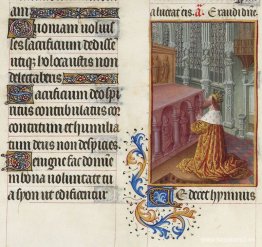 am
Quoniam si voluiſ
les sacrificium dediſſe
utique holocauſtis non
delectaberis
Sacrificium deo ſpi
ritus contribulatus cor
contritum et humilia
tum deus non deſpicies
Benigne fac domine
in bona voluntate tu
a ſyon ut edificent
a. Exaudi dne
Te decet hymnus